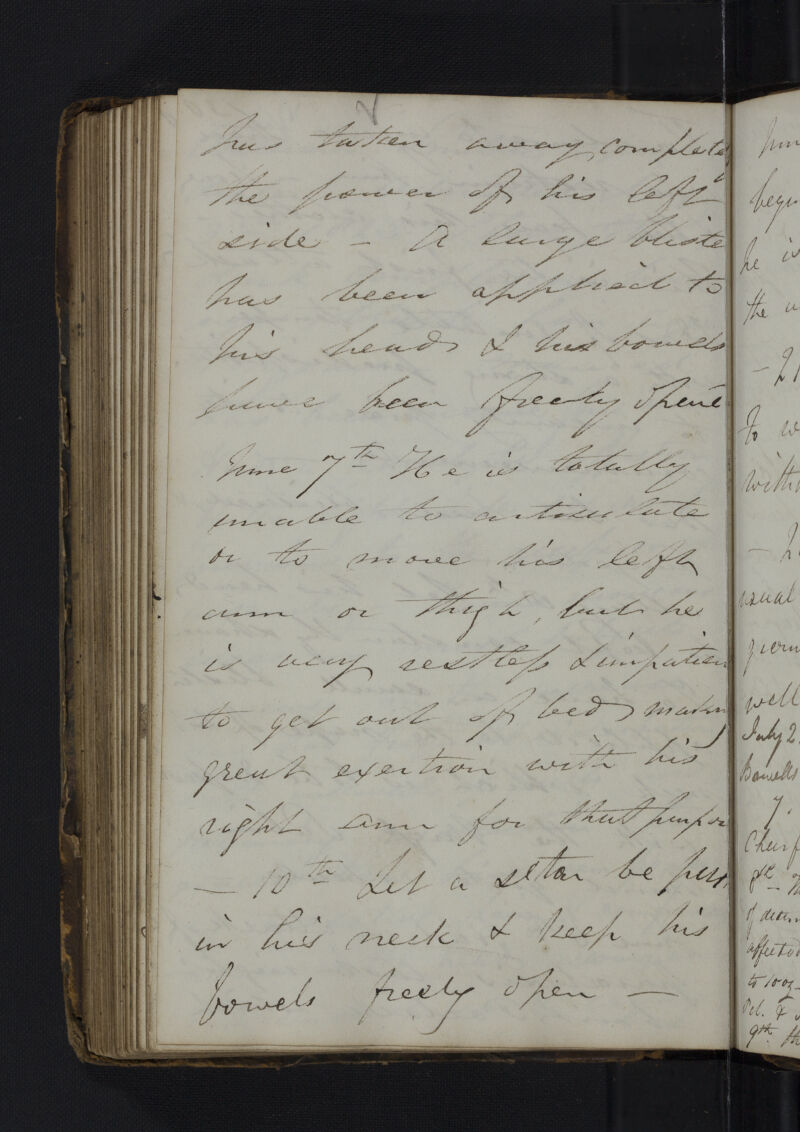 has taken away completely
the power of his left
side - A large bliste
has been applied to
his head & his bowels
have been freely opene
June 7th He is totally
unable to articulate
or to move his left
arm or thigh, but he
is very restless & impatien
to get out of bed making
great exertion with his
right arm for that purpos
- 10th Let a seton be put
in his neck & keep his
bowels freely open -
begu
he is
the
- 21
To
with
usual
well
July 2
Bowells
7.
affected
to 10oz -
9th th